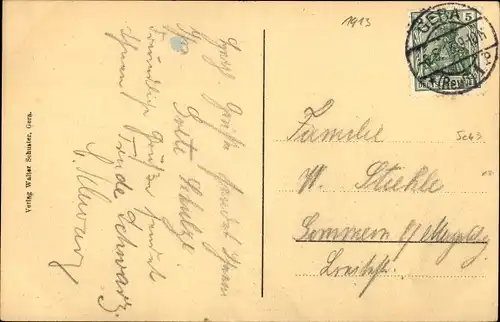 1913
GERA
5
(Reuß)
5c43
Verlag Walter Schuster, Gera.
Herzl. Grüße sendet Ihnen
Ihre
Grete Schulze.
Freundliche Grüße sendet
Ihnen Trude Schwarz.
E. Schwarz
Familie
W. Stiehle
Gommern b/ Magdbg